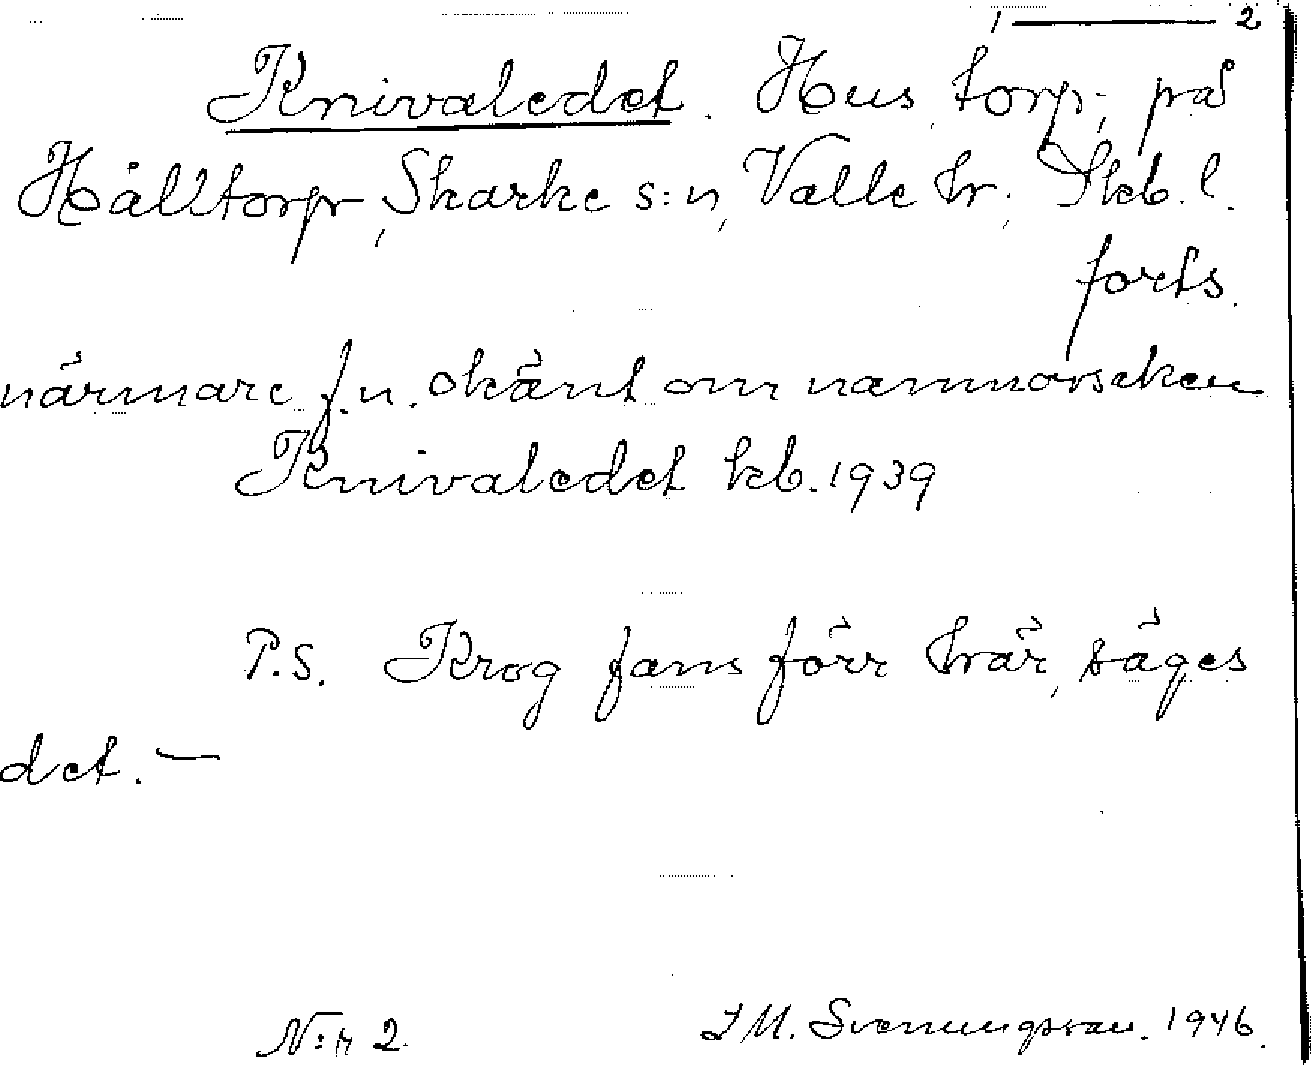 1 — 2
Knivaledet. Hus, torp, på
Hålltorp, Skarke s:n, Valle hr; Skb. l.
forts.
närmare f.n. okänt om namnorsaken
Knivaledet kb. 1939
P.S. Krog fans förr här, säges
det. —
N:r 2. I M. Svenungsson. 1946.